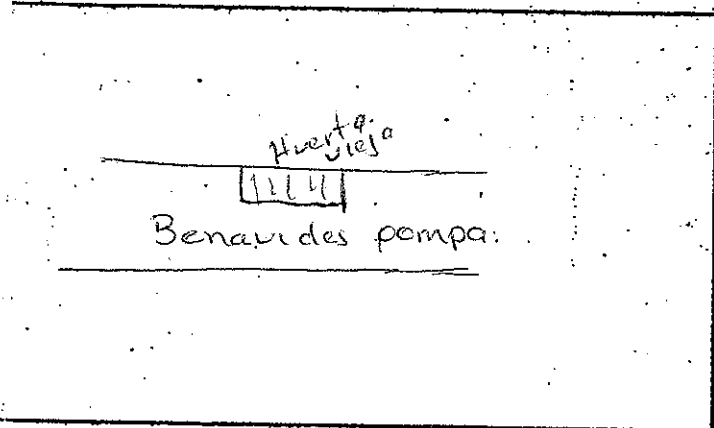 Huerta
vieja
Benavides pompa.